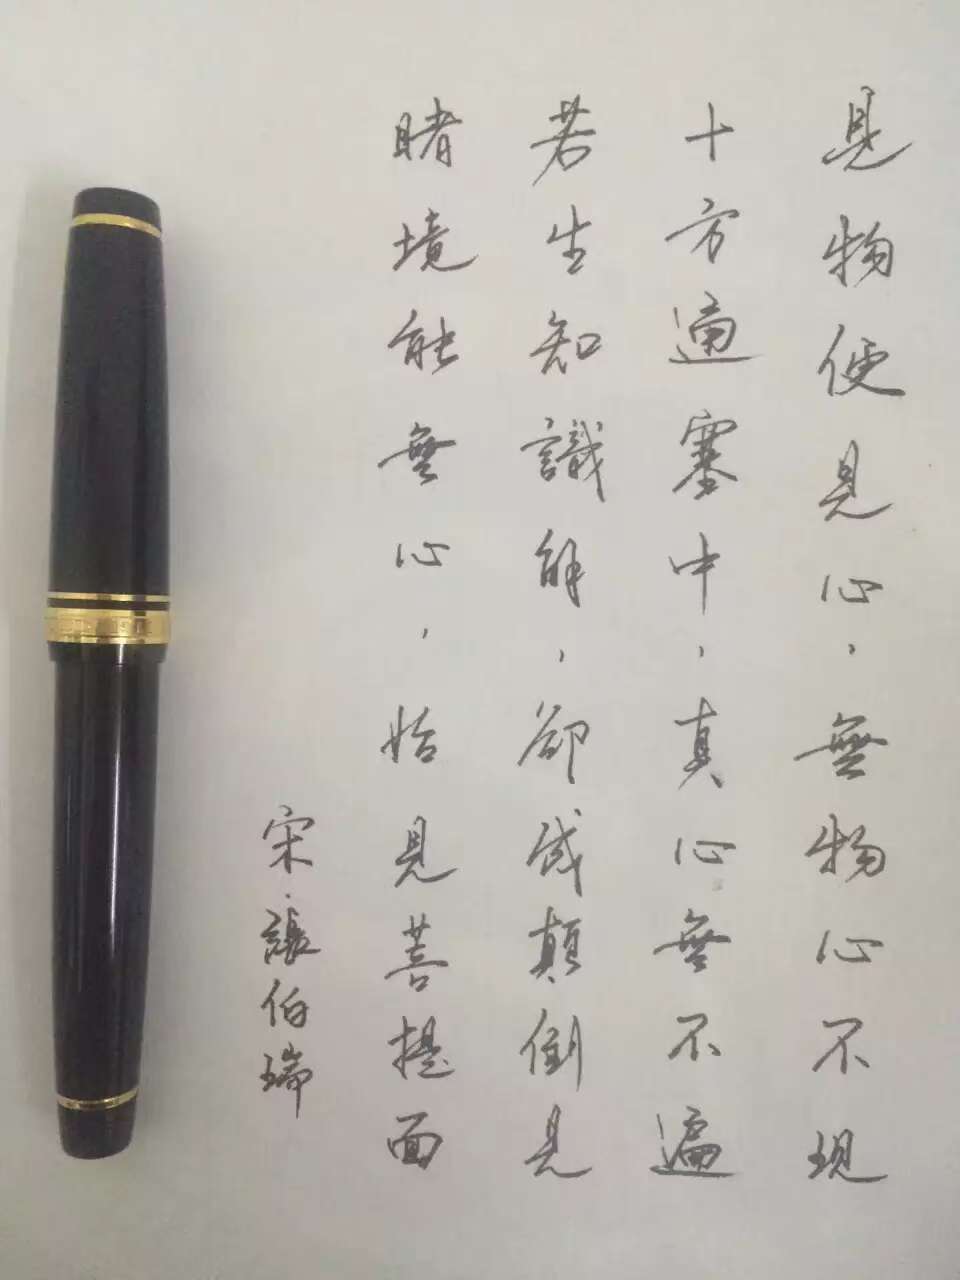 見物便見心，無物心不現
十方通塞中，真心無不遍
若生知識解，卻成顛倒見
睹境能無心，始見菩提面
宋·張伯瑞